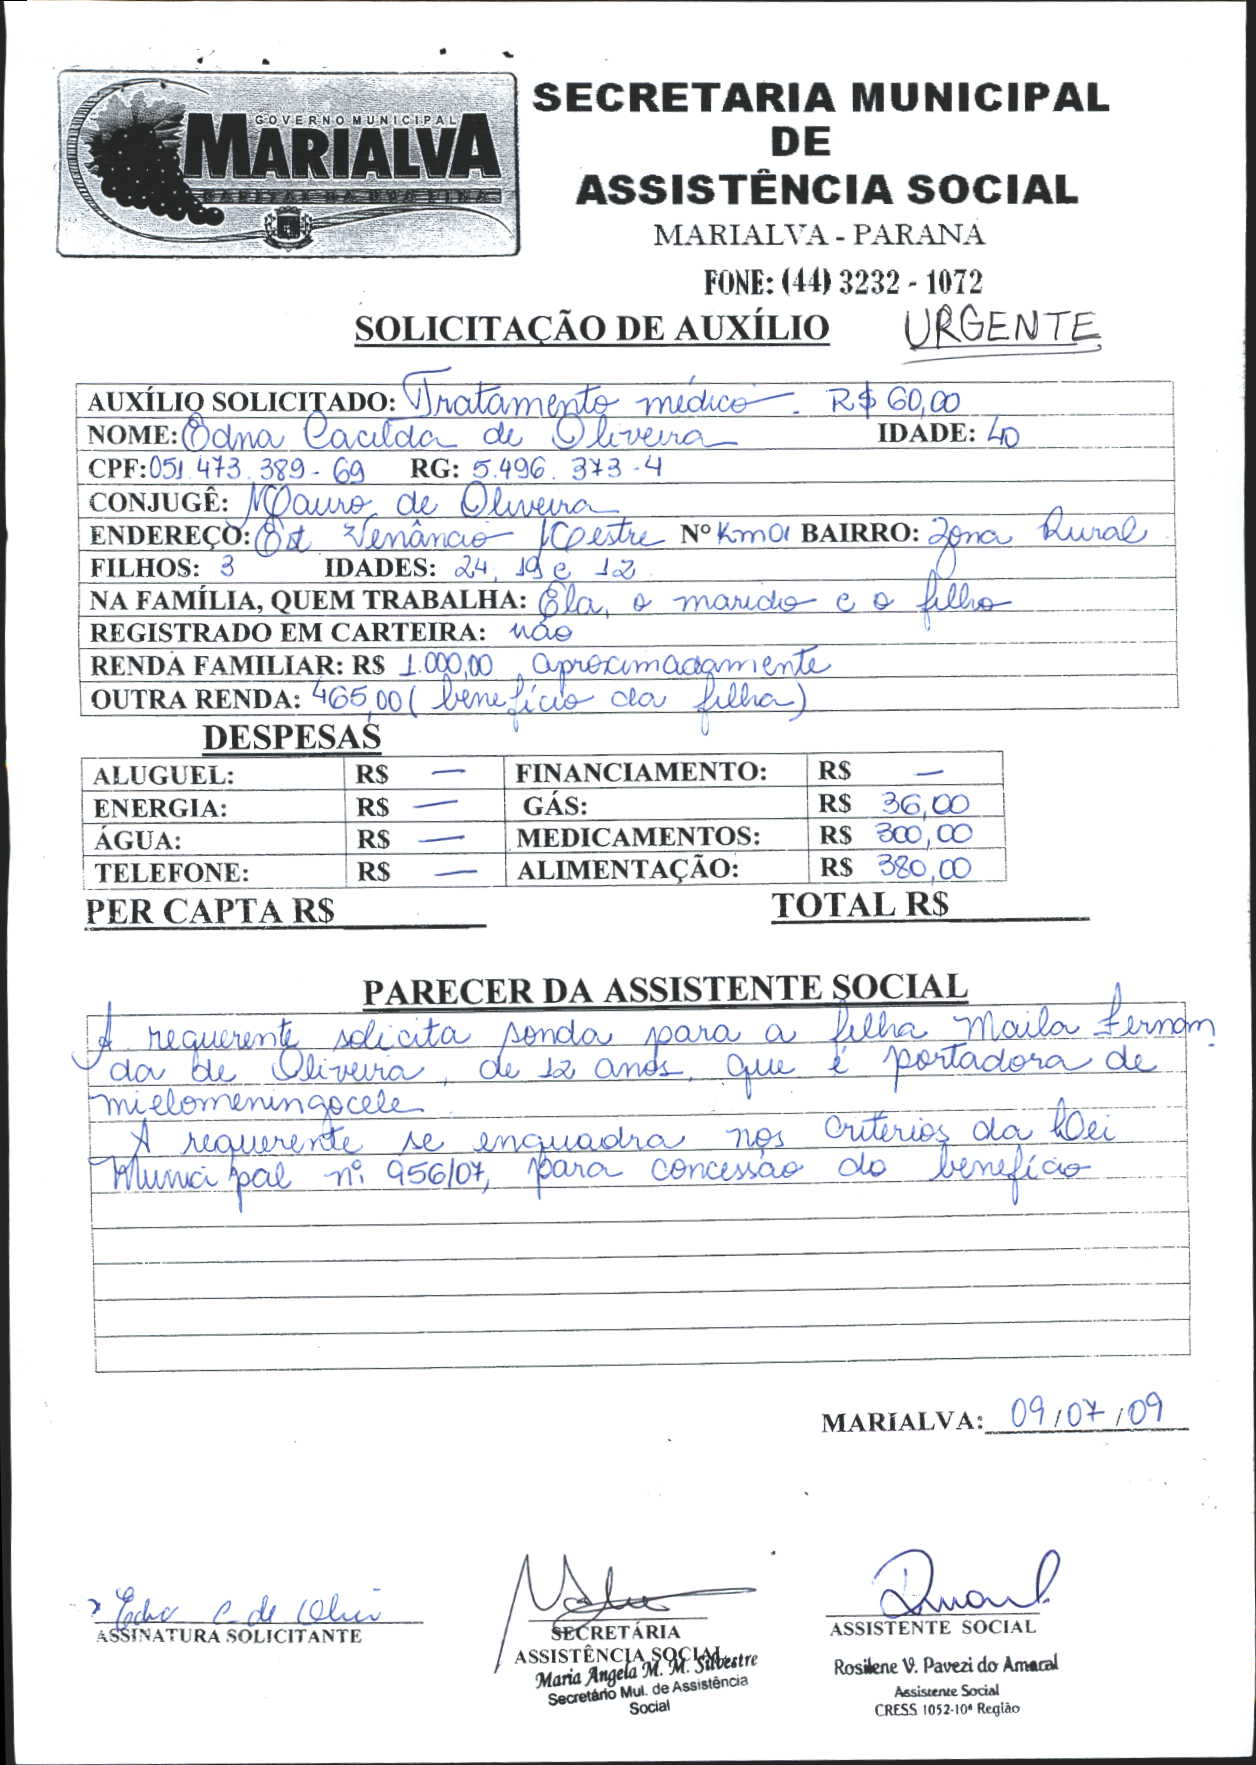 GOVERNO MUNICIPAL
MARIALVA
CAPITAL DA UVA FINA
SECRETARIA MUNICIPAL
DE
ASSISTÊNCIA SOCIAL
MARIALVA - PARANÁ
FONE: (44) 3232 - 1072
SOLICITAÇÃO DE AUXÍLIO URGENTE
AUXÍLIO SOLICITADO: Tratamento médico. R$ 60,00
NOME: Edna Cacilda de Oliveira IDADE: 40
CPF: 051.473.389-69 RG: 5.496.373-4
CONJUGÊ: Mauro de Oliveira
ENDEREÇO: Est Venâncio Mestre Nº Km 01 BAIRRO: Zona Rural
FILHOS: 3 IDADES: 24, 19 e 12
NA FAMÍLIA, QUEM TRABALHA: Ela, o marido e o filho
REGISTRADO EM CARTEIRA: não
RENDA FAMILIAR: R$ 1.000,00, aproximadamente
OUTRA RENDA: 465,00 (benefício da filha)
DESPESAS
ALUGUEL: R$ — FINANCIAMENTO: R$ —
ENERGIA: R$ — GÁS: R$ 36,00
ÁGUA: R$ — MEDICAMENTOS: R$ 300,00
TELEFONE: R$ — ALIMENTAÇÃO: R$ 380,00
PER CAPTA R$ TOTAL R$
PARECER DA ASSISTENTE SOCIAL
A requerente solicita sonda para a filha Maila Fernan
da de Oliveira, de 12 anos, que é portadora de
mielomeningocele.
A requerente se enquadra nos critérios da Lei
Municipal nº 956/07, para concessão do benefício
MARIALVA: 09/07/09
Edna C. de Olivei
ASSINATURA SOLICITANTE
SECRETÁRIA
ASSISTÊNCIA SOCIAL
Maria Angela M. M. Silvestre
Secretário Mul. de Assistência
Social
ASSISTENTE SOCIAL
Rosilene V. Pavezi do Amaral
Assistente Social
CRESS 1052-10ª Região